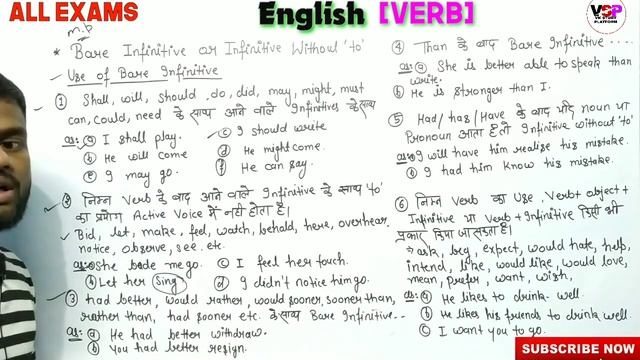 ALL EXAMS
English [VERB]
VSP
PLATFORM
m.p
* Bare Infinitive or Infinitive Without 'to'
- Use of Bare Infinitive
① Shall, will, should, do, did, may, might, must
can, could, need के साथ आने वाले Infinitives के साथ
ⓐ I shall play.
ⓑ He will come
ⓔ I may go.
ⓒ I should write
ⓓ He might come.
ⓕ He can say.
② निम्न Verb के बाद आने वाले Infinitive के साथ 'to'
का प्रयोग Active Voice में नहीं होता है।
Bid, let, make, feel, watch, behold, here, overhear,
notice, observe, see. etc.
ⓐ She bade me go.
ⓑ Let her Sing
ⓒ I feel her touch.
ⓓ I didn't notice him go.
③ had better, would rather, would sooner, sooner than,
rather than, had sooner etc. के साथ Bare Infinitive..
ⓐ He had better withdraw.
ⓑ You had better resign.
④ Than के बाद Bare Infinitive ....
ⓐ She is better able to speak than
write.
ⓑ He is stronger than I.
⑤ Had/has/Have के बाद यदि noun या
Pronoun आता है तो Infinitive without 'to'
ⓐ I will have him realise his mistake.
ⓑ I had him know his mistake.
⑥ निम्न Verb का Use, Verb + object +
Infinitive या Verb + Infinitive किसी भी
प्रकार किया जा सकता है।
ask, beg, expect, would hate, help,
intend, like, would like, would love,
mean, prefer, want, wish,
ⓐ He likes to drink well.
ⓑ He likes his friends to drink well.
ⓒ I want you to go.
SUBSCRIBE NOW